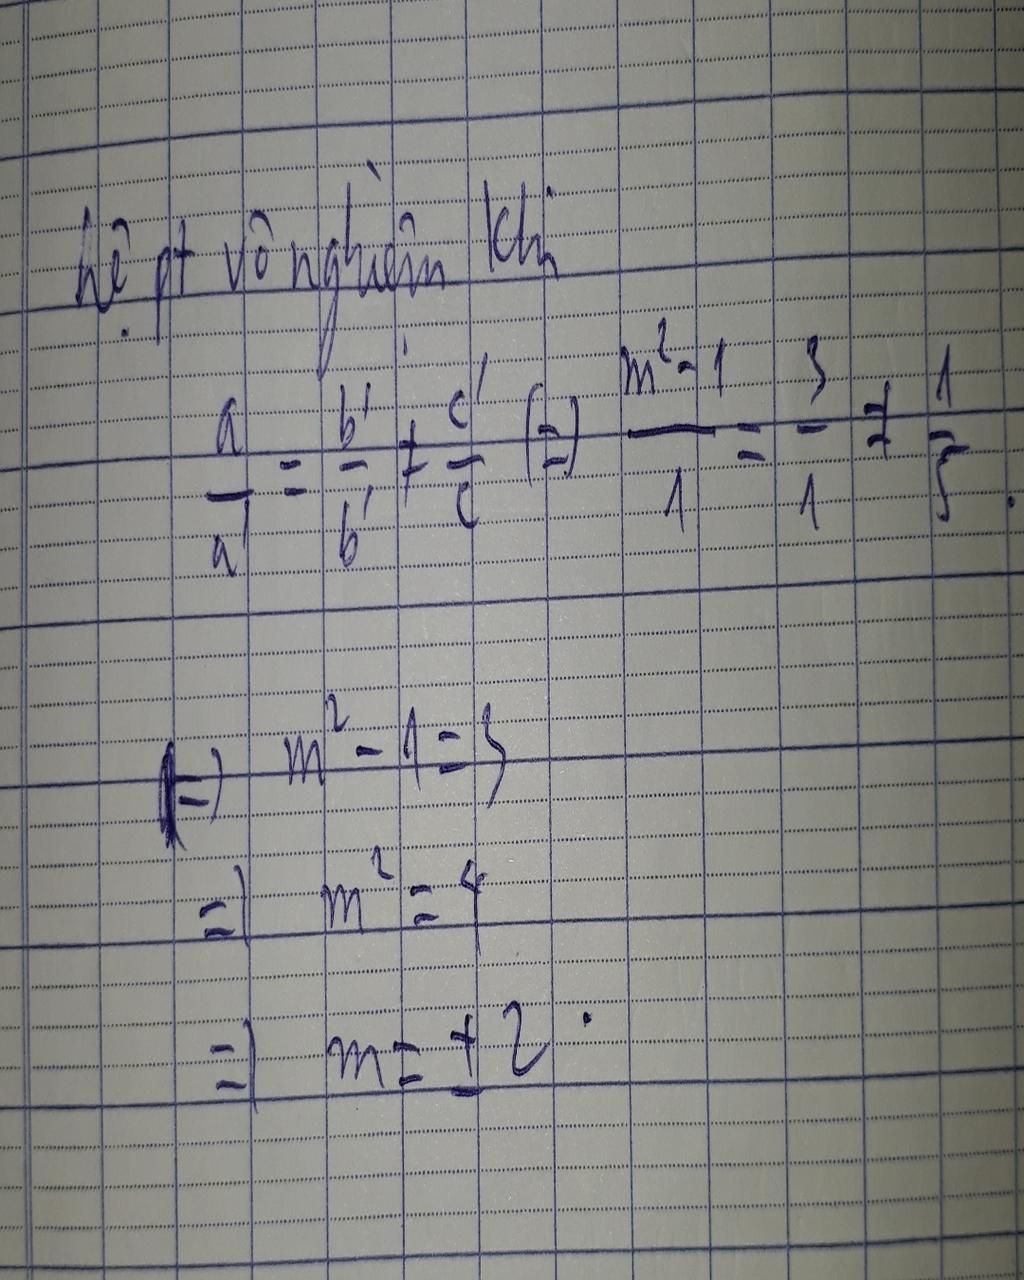 hệ pt vô nghiệm khi
a/a' = b'/b' ≠ c'/c (=) m² - 1/1 = 3/1 ≠ 1/5.
(=) m² - 1 = 3
=) m² = 4
=) m = ± 2.